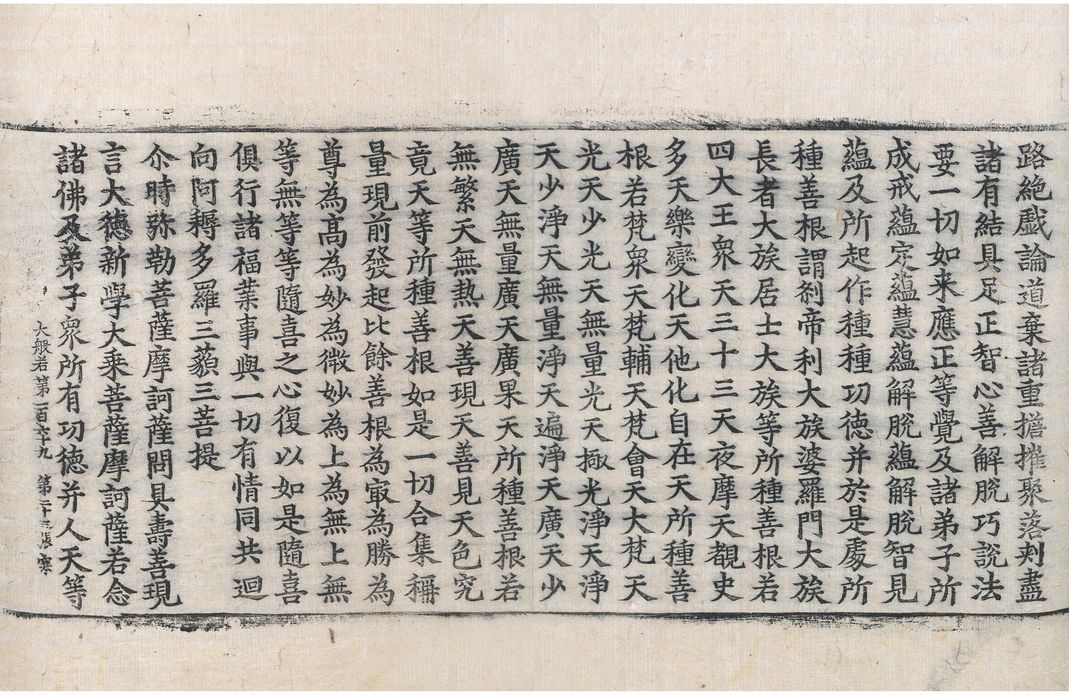 路絶戱論道棄諸重擔摧聚落刾盡
諸有結具足正智心善解脫巧說法
要一切如来應正等覺及諸弟子所
成戒蘊定蘊慧蘊解脫蘊解脫智見
蘊及所起作種種功德并於是處所
種善根謂剎帝利大族婆羅門大族
長者大族居士大族等所種善根若
四大王衆天三十三天夜摩天覩史
多天樂變化天他化自在天所種善
根若梵衆天梵輔天梵會天大梵天
光天少光天無量光天極光淨天淨
天少淨天無量淨天遍淨天廣天少
廣天無量廣天廣果天所種善根若
無繁天無熱天善現天善見天色究
竟天等所種善根如是一切合集稱
量現前發起比餘善根為冣為勝為
尊為髙為妙為微妙為上為無上無
等無等等隨喜之心復以如是隨喜
俱行諸福業事與一切有情同共迴
向阿耨多羅三藐三菩提
尒時弥勒菩薩摩訶薩問具壽善現
言大德新學大乗菩薩摩訶薩若念
諸佛及弟子衆所有功德并人天等
大般若第一百六十九 第二十三張 寒